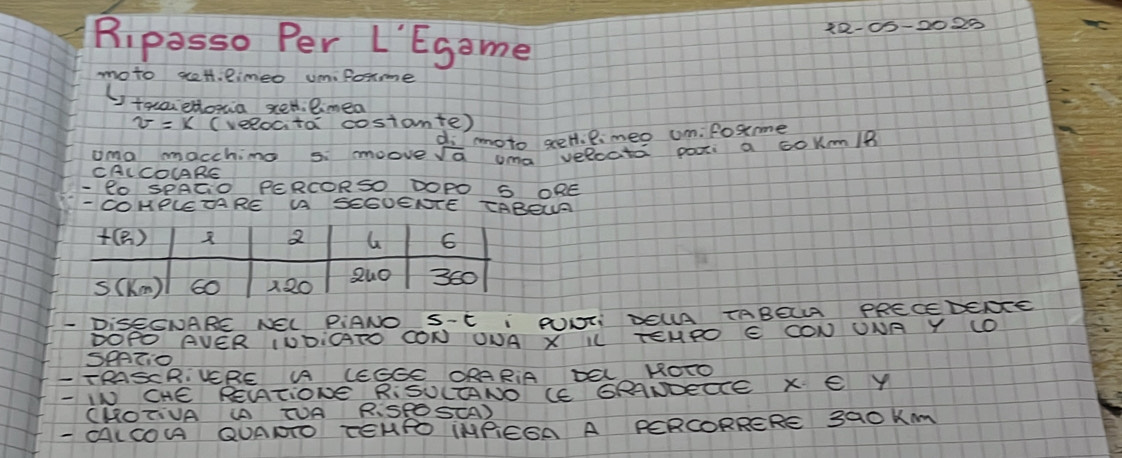 Ripasso Per L'Esame
12-05-2025
moto rettilineo uniforme
↳ traiettoria rettilinea
v = K (velocità costante)
una macchina si muove √ di moto rettilineo uniforme a una velocità pari a 60 Km/h
CALCOLARE
- lo SPAZIO PERCORSO DOPO 5 ORE
- COMPLETARE LA SEGUENTE TABELLA
t(h) | 1 | 2 | 4 | 6
S(Km) | 60 | 120 | 240 | 360
- DISEGNARE NEL PIANO S-t i PUNTI DELLA TABELLA PRECEDENTE
DOPO AVER INDICATO CON UNA X IL TEMPO E CON UNA Y LO
SPAZIO
- TRASCRIVERE LA LEGGE ORARIA DEL MOTO
- IN CHE RELAZIONE RISULTANO LE GRANDEZZE X E Y
(MOTIVA LA TUA RISPOSTA)
- CALCOLA QUANTO TEMPO IMPIEGA A PERCORRERE 390 Km